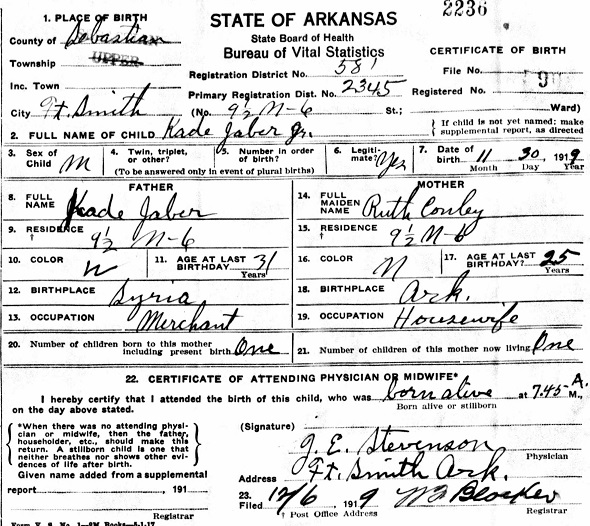 2236
1. PLACE OF BIRTH
STATE OF ARKANSAS
County of Sebastian
State Board of Health
Bureau of Vital Statistics
CERTIFICATE OF BIRTH
Township UPPER
Registration District No. 581
File No.
Inc. Town
Primary Registration Dist. No. 2345
Registered No. 9
City Ft. Smith (No. 9½ N-6 St.; Ward)
2. FULL NAME OF CHILD Kade Jaber Jr.
If child is not yet named; make supplemental report, as directed
3. Sex of Child M
4. Twin, triplet, or other?
5. Number in order of birth?
(To be answered only in event of plural births)
6. Legitimate? Yes
7. Date of birth 11 30, 1919
Month Day Year
FATHER
MOTHER
8. FULL NAME Kade Jaber
14. FULL MAIDEN NAME Ruth Conley
9. RESIDENCE † 9½ N-6
15. RESIDENCE † 9½ N-6
10. COLOR W
11. AGE AT LAST BIRTHDAY 31 Years
16. COLOR
17. AGE AT LAST BIRTHDAY? 25 Years
12. BIRTHPLACE Syria
18. BIRTHPLACE Ark.
13. OCCUPATION Merchant
19. OCCUPATION Housewife
20. Number of children born to this mother including present birth One
21. Number of children of this mother now living One
22. CERTIFICATE OF ATTENDING PHYSICIAN OR MIDWIFE*
I hereby certify that I attended the birth of this child, who was born alive at 7.45 A. M.,
Born alive or stillborn
on the day above stated.
*When there was no attending physician or midwife, then the father, householder, etc., should make this return. A stillborn child is one that neither breathes nor shows other evidences of life after birth.
(Signature) J. E. Stevenson
Physician
Given name added from a supplemental
Address Ft. Smith Ark.
report , 191
23. Filed 12/6, 1919 Blocker
† Post Office Address
Registrar
Registrar
Form V. S. No. 1—2M Books—5-1-17